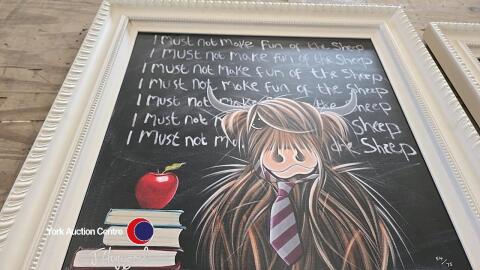 I Must not Make fun of the Sheep
I Must not Make fun of the Sheep
I Must not Make fun of the Sheep
I Must not Make fun of the Sheep
I Must not Make fun of the Sheep
I Must not Sheep
I Must not the Sheep
York Auction Centre